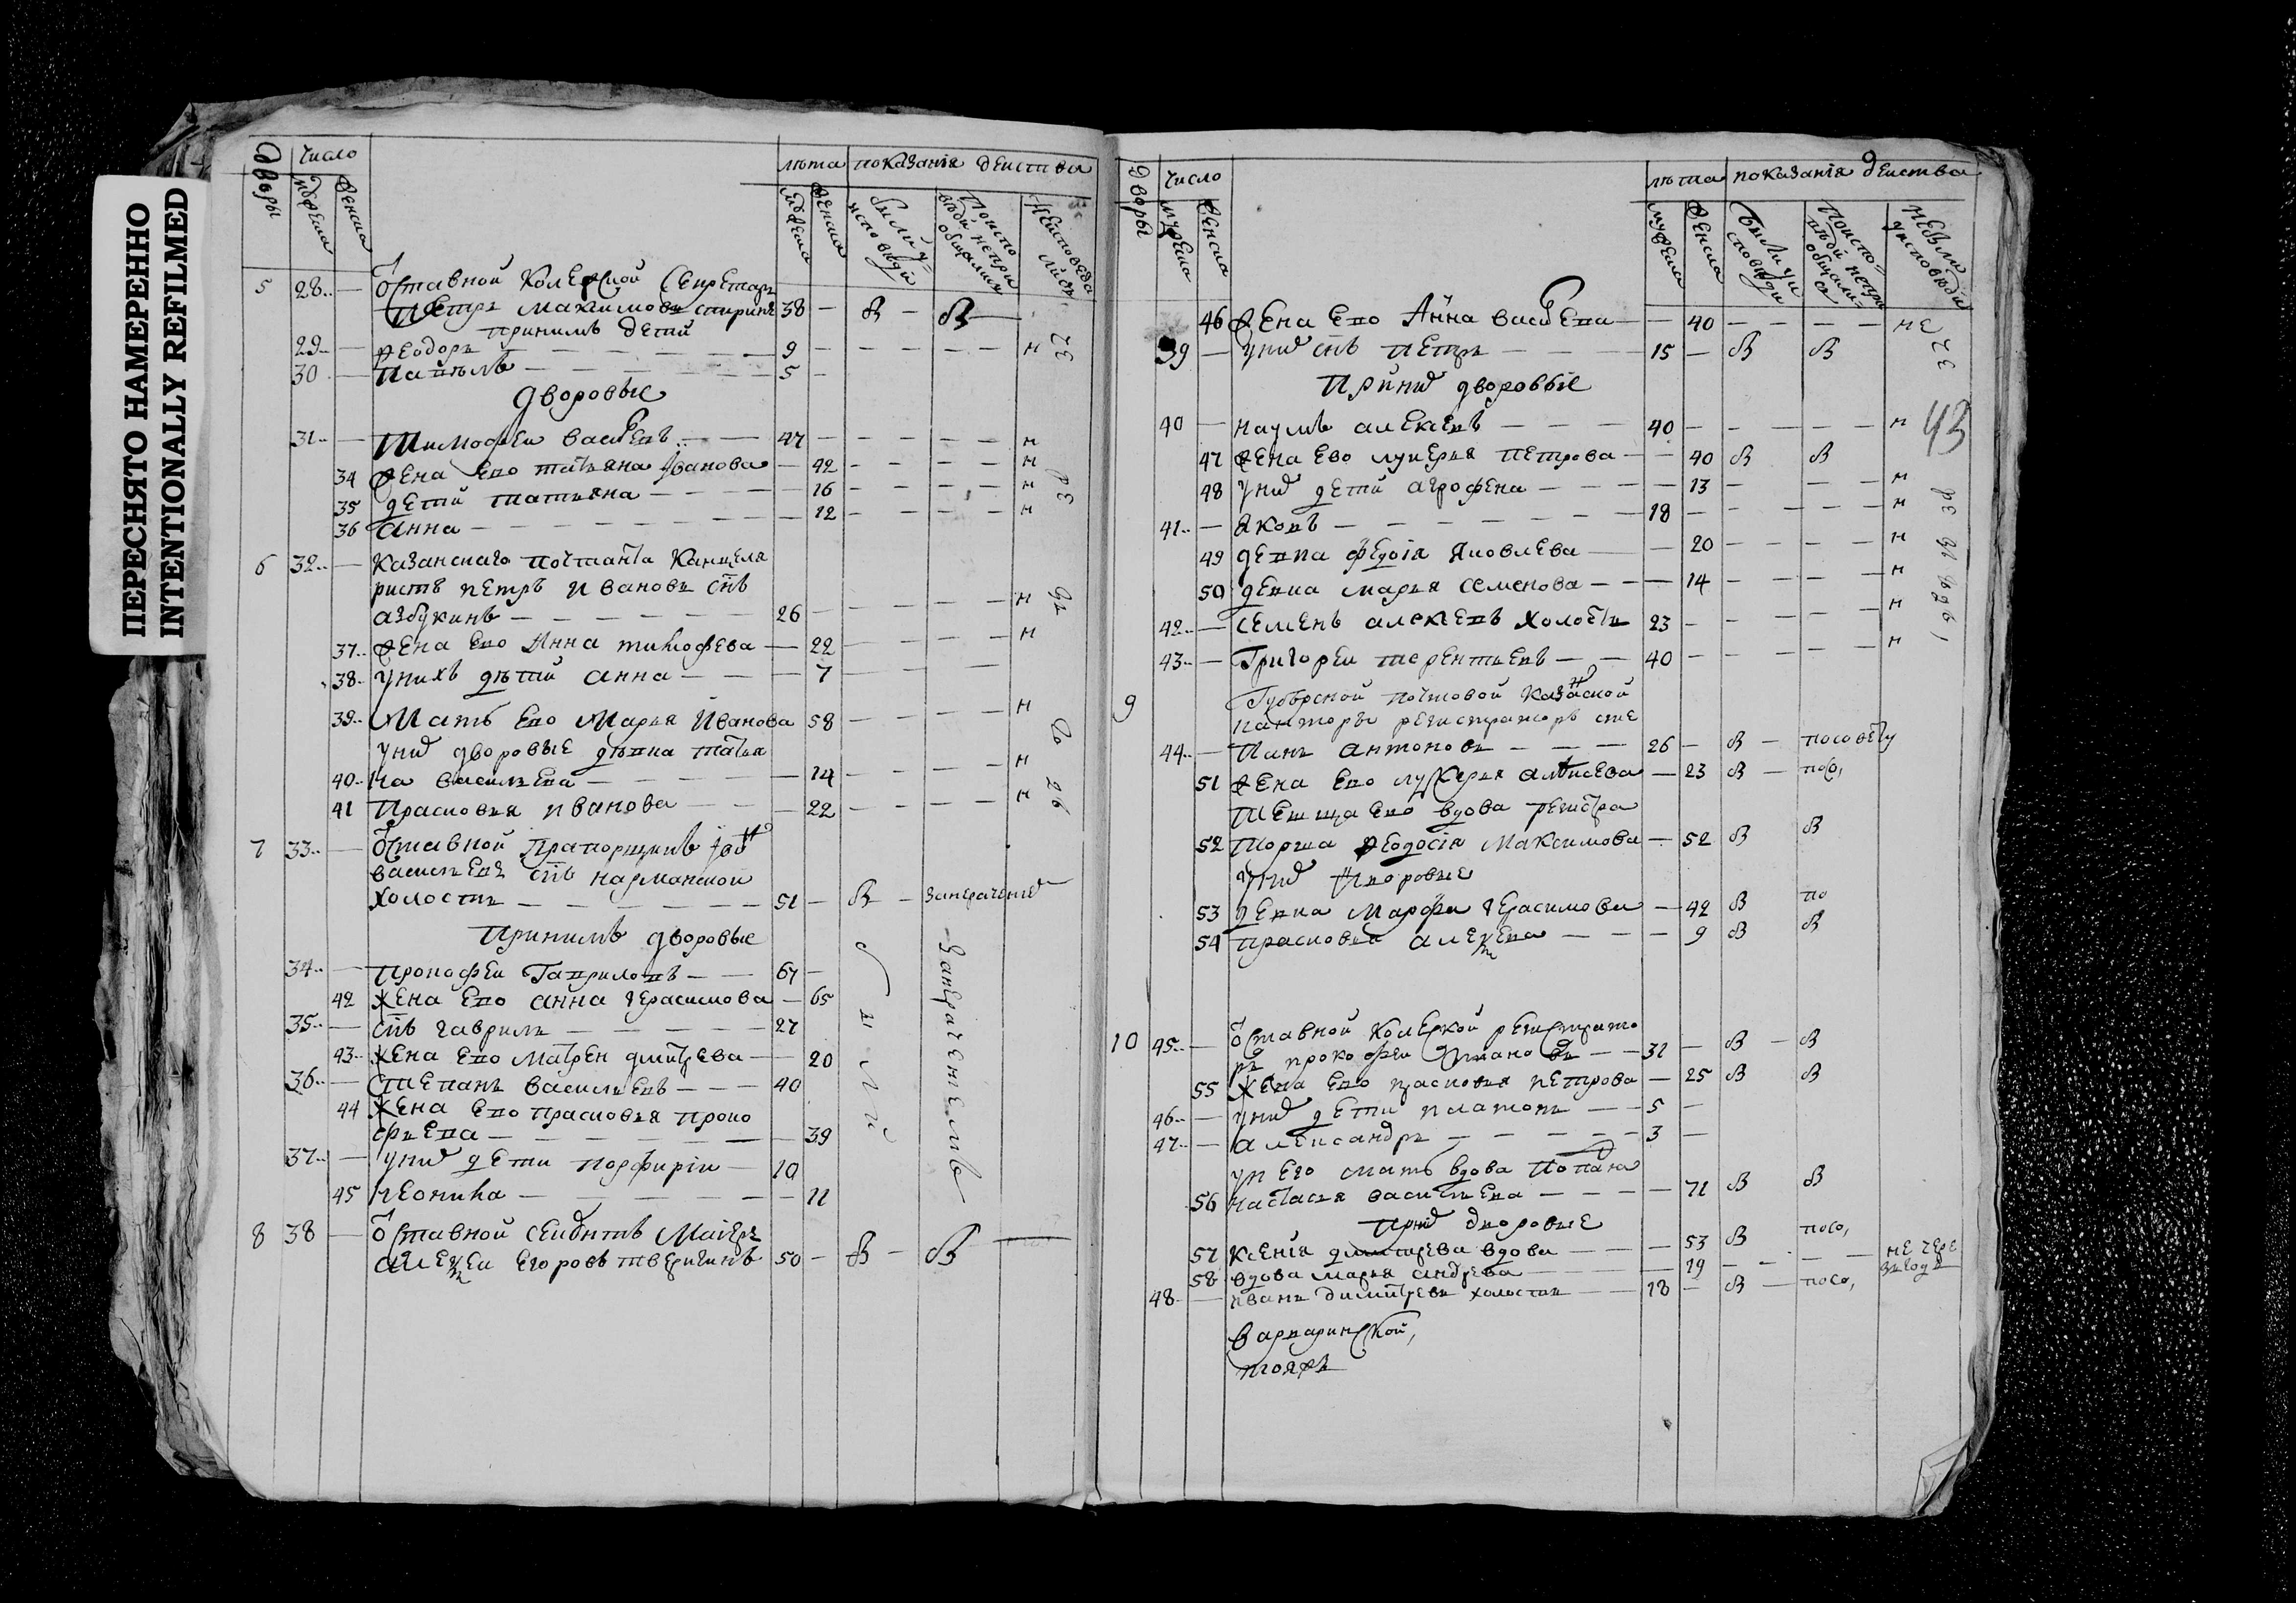 ПЕРЕСНЯТО НАМЕРЕННО
INTENTIONALLY REFILMED
Дворы число лѣта показанія действа
мужеска женска мужеска женска были у исповѣди
5 28 — Ѡставной колежской секретарь
Петръ Максимовъ 38 — В — В —
При нимъ дети
29 — Феодоръ — 9 — — — — н
30 — Павелъ — 5 —
дворовые
31 — Тимофеи Василевъ — 47 — — — — н
34 жена ево татьяна Iванова — 42 — — — — н
35 дети татьяна — 16 — — — — н
36 Анна — 12 — — — — н
6 32 — Казанскаго почтамта канцеля
ристъ петръ Ивановъ снъ
азбукинъ — 26 — — — — н
37 жена ево Анна тимофева — 22 — — — — н
38 у нихъ дѣти анна — 7 — — —
39 Мать ево Марья Иванова 58 — — — — н
у них дворовые дѣвка татья
40 на василева — 14 — — — — н
41 Прасковья ивановa — 22 — — — — н
7 33 — Ѡставной Прапорщикъ
васильевъ снъ нарманской
холостъ — 51 — В —
При нимъ дворовые
34 — Прокофеи Гавриловъ — 67 —
42 жена ево анна герасимова — 65
35 — снъ гаврилъ — 27
43 жена ево матрен дмитрева — 20
36 — Степанъ василевъ — 40
44 жена ево прасковья проко
фьева — 39
37 — у них дети порфирiи — 10
45 Неонила — 11
8 38 — Ѡставной секундъ маiеръ
алексеи Егоровъ тверитинъ 50 — В — В
были
Дворы число лѣта показанія действа
мужеска женска мужеска женска были у исповѣди не были у исповѣди
46 жена ево Анна васильева — 40 — — — — не
39 — у них снъ петръ — 15 — В В
При них дворовые
43
40 — наумъ алексевъ — 40 — — — — н
47 жена ево лукерья петрова — 40 В В
48 у них дети агрофена — 13 — — — н
41 — Яковъ — 18 — — — — н
49 девка федосiя яковлева — 20 — — — — н
50 девка марья семенова — 14 — — — — н
42 — семенъ алексевъ холостъ 23 — — — — н
43 — Григореи терентьевъ — 40 — — — — н
9 Губернской почтовой казанской
канторы регистраторъ сте
44 — панъ антоновъ — 26 — В — по совету
51 жена ево лукерья алексева — 23 В — по со,
Теща ево вдова регистра
52 торша Феодосiя Максимова — 52 В В
у них дворовые
53 девка Марфа герасимова — 42 В по
54 прасковья алексева — 9 В В
10 45 — Ѡставной колежской регистрато
ръ прокофеи — 31 — В — В
55 жена ево прасковья петрова — 25 В В
46 — у них дети платонъ — 5 —
47 — александръ — 3 —
у него мать вдова
56 настасья васильева — 71 В В
При них дворовые
57 ксения дмитрева вдова — 53 В по со,
58 вдова марья андрева — 19 — — — не чере
зъ годъ
48 — иванъ димитревъ холостъ — 18 — В — по со,
варваринской,